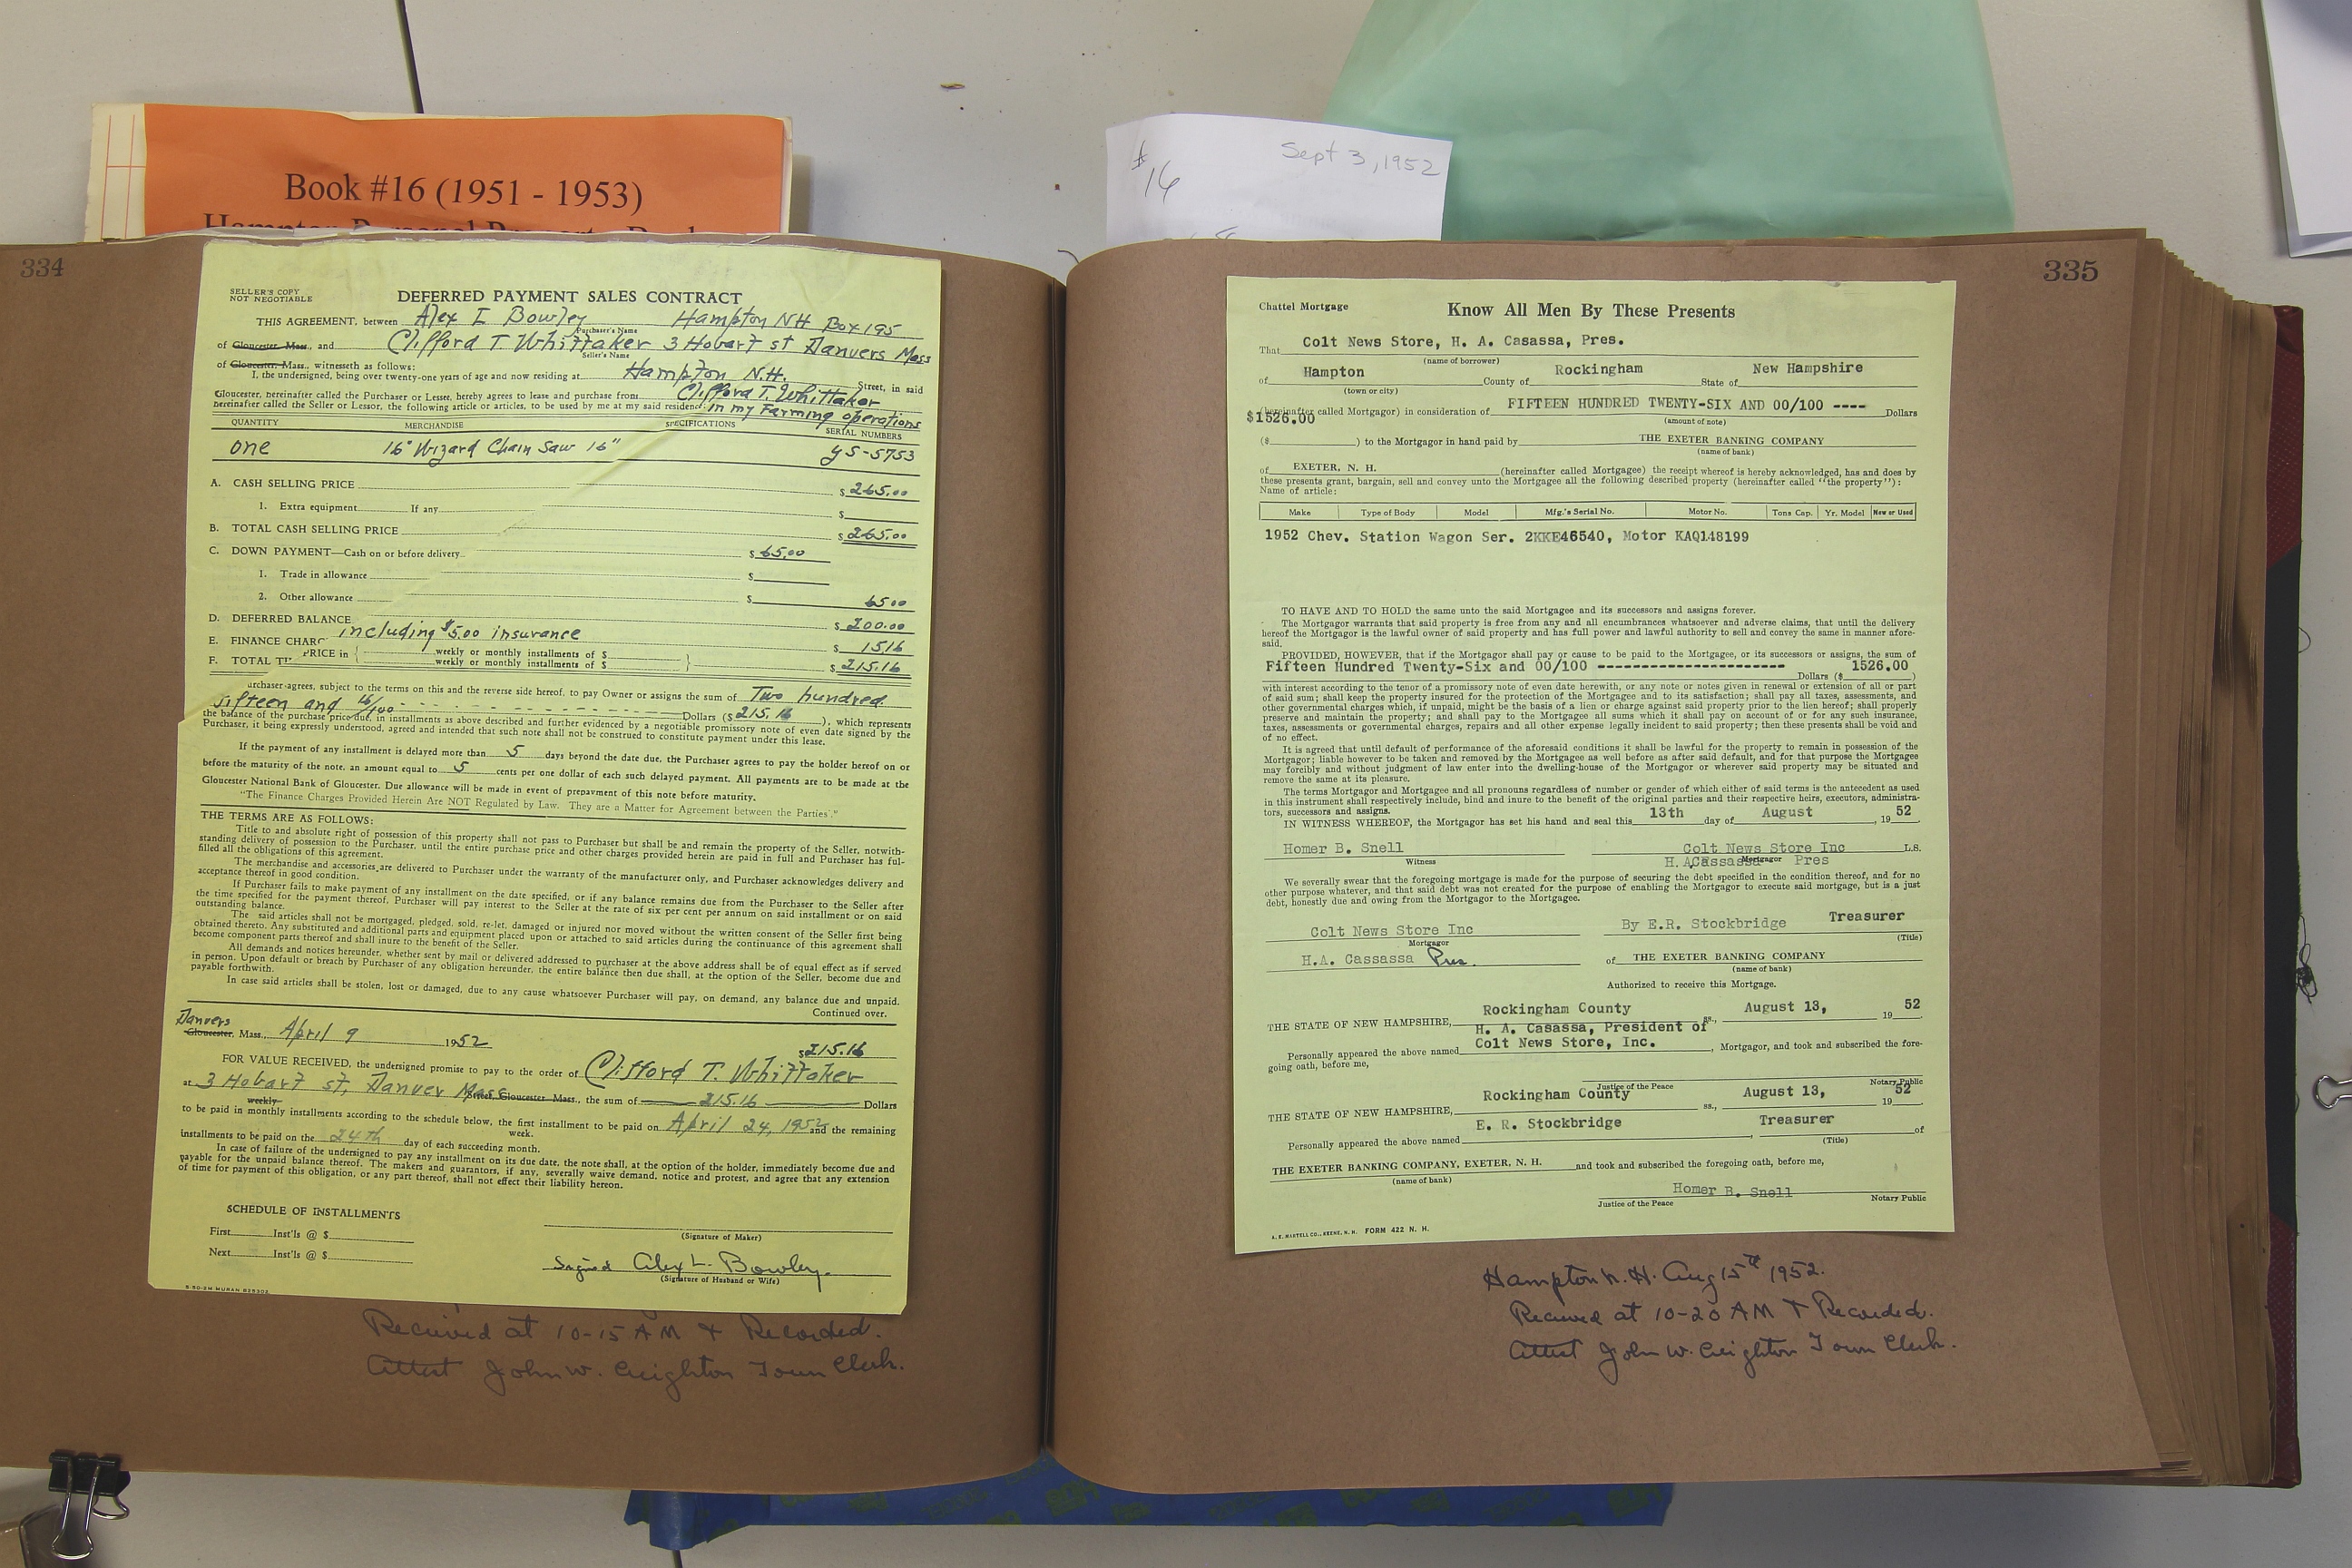 Book #16 (1951 - 1953)
# 16
Sept 3, 1952
334
SELLER'S COPY
NOT NEGOTIABLE
DEFERRED PAYMENT SALES CONTRACT
THIS AGREEMENT, between Alex L Bowley Hampton NH Box 195
Purchaser's Name
of Gloucester, Mass., and Clifford T. Whittaker 3 Hobart st Danvers Mass
Seller's Name
of Gloucester, Mass., witnesseth as follows:
I, the undersigned, being over twenty-one years of age and now residing at Hampton N.H. Street, in said
Gloucester, hereinafter called the Purchaser or Lessee, hereby agrees to lease and purchase from Clifford T. Whittaker
hereinafter called the Seller or Lessor, the following article or articles, to be used by me at my said residence in my Farming operations
QUANTITY MERCHANDISE SPECIFICATIONS SERIAL NUMBERS
one 16" Wizard Chain Saw 16" YS-5753
A. CASH SELLING PRICE $ 265.00
1. Extra equipment If any $
B. TOTAL CASH SELLING PRICE $ 265.00
C. DOWN PAYMENT—Cash on or before delivery $ 65.00
1. Trade in allowance $
2. Other allowance $ 65 00
D. DEFERRED BALANCE $ 200.00
E. FINANCE CHARG including $5.00 insurance $ 15 16
F. TOTAL TI PRICE in { weekly or monthly installments of $
weekly or monthly installments of $ } $ 215.16
urchaser agrees, subject to the terms on this and the reverse side hereof, to pay Owner or assigns the sum of Two hundred
fifteen and 16/100 - - - - Dollars ($ 215.16 ), which represents
the balance of the purchase price due, in installments as above described and further evidenced by a negotiable promissory note of even date signed by the
Purchaser, it being expressly understood, agreed and intended that such note shall not be construed to constitute payment under this lease.
If the payment of any installment is delayed more than 5 days beyond the date due, the Purchaser agrees to pay the holder hereof on or
before the maturity of the note, an amount equal to 5 cents per one dollar of each such delayed payment. All payments are to be made at the
Gloucester National Bank of Gloucester. Due allowance will be made in event of prepayment of this note before maturity.
"The Finance Charges Provided Herein Are NOT Regulated by Law. They are a Matter for Agreement between the Parties."
THE TERMS ARE AS FOLLOWS:
Title to and absolute right of possession of this property shall not pass to Purchaser but shall be and remain the property of the Seller, notwith-
standing delivery of possession to the Purchaser, until the entire purchase price and other charges provided herein are paid in full and Purchaser has ful-
filled all the obligations of this agreement.
The merchandise and accessories are delivered to Purchaser under the warranty of the manufacturer only, and Purchaser acknowledges delivery and
acceptance thereof in good condition.
If Purchaser fails to make payment of any installment on the date specified, or if any balance remains due from the Purchaser to the Seller after
the time specified for the payment thereof, Purchaser will pay interest to the Seller at the rate of six per cent per annum on said installment or on said
outstanding balance.
The said articles shall not be mortgaged, pledged, sold, re-let, damaged or injured nor moved without the written consent of the Seller first being
obtained thereto. Any substituted and additional parts and equipment placed upon or attached to said articles during the continuance of this agreement shall
become component parts thereof and shall inure to the benefit of the Seller.
All demands and notices hereunder, whether sent by mail or delivered addressed to purchaser at the above address shall be of equal effect as if served
in person. Upon default or breach by Purchaser of any obligation hereunder, the entire balance then due shall, at the option of the Seller, become due and
payable forthwith.
In case said articles shall be stolen, lost or damaged, due to any cause whatsoever Purchaser will pay, on demand, any balance due and unpaid.
Continued over.
Danvers
Gloucester, Mass., April 9 1952
$215.16
FOR VALUE RECEIVED, the undersigned promise to pay to the order of Clifford T. Whittaker
at 3 Hobart st, Danver Mass Street, Gloucester Mass., the sum of 215.16 Dollars
weekly
to be paid in monthly installments according to the schedule below, the first installment to be paid on April 24, 1952 and the remaining
week.
installments to be paid on the 24th day of each succeeding month.
In case of failure of the undersigned to pay any installment on its due date, the note shall, at the option of the holder, immediately become due and
payable for the unpaid balance thereof. The makers and guarantors, if any, severally waive demand, notice and protest, and agree that any extension
of time for payment of this obligation, or any part thereof, shall not effect their liability hereon.
SCHEDULE OF INSTALLMENTS
First Inst'ls @ $
(Signature of Maker)
Next Inst'ls @ $
Signed Alex L. Bowley.
(Signature of Husband or Wife)
Received at 10-15 AM + Recorded.
Attest John W. Creighton Town Clerk.
335
Chattel Mortgage
Know All Men By These Presents
That Colt News Store, H. A. Casassa, Pres.
(name of borrower)
of Hampton County of Rockingham State of New Hampshire
(town or city)
(hereinafter called Mortgagor) in consideration of FIFTEEN HUNDRED TWENTY-SIX AND 00/100 ---- Dollars
$1526.00 (amount of note)
($ ) to the Mortgagor in hand paid by THE EXETER BANKING COMPANY
(name of bank)
of EXETER, N. H. (hereinafter called Mortgagee) the receipt whereof is hereby acknowledged, has and does by
these presents grant, bargain, sell and convey unto the Mortgagee all the following described property (hereinafter called "the property"):
Name of article:
Make Type of Body Model Mfg.'s Serial No. Motor No. Tons Cap. Yr. Model New or Used
1952 Chev. Station Wagon Ser. 2KKE46540, Motor KAQ148199
TO HAVE AND TO HOLD the same unto the said Mortgagee and its successors and assigns forever.
The Mortgagor warrants that said property is free from any and all encumbrances whatsoever and adverse claims, that until the delivery
hereof the Mortgagor is the lawful owner of said property and has full power and lawful authority to sell and convey the same in manner afore-
said.
PROVIDED, HOWEVER, that if the Mortgagor shall pay or cause to be paid to the Mortgagee, or its successors or assigns, the sum of
Fifteen Hundred Twenty-Six and 00/100 ---------------------- 1526.00
Dollars ($ )
with interest according to the tenor of a promissory note of even date herewith, or any note or notes given in renewal or extension of all or part
of said sum; shall keep the property insured for the protection of the Mortgagee and to its satisfaction; shall pay all taxes, assessments, and
other governmental charges which, if unpaid, might be the basis of a lien or charge against said property prior to the lien hereof; shall properly
preserve and maintain the property; and shall pay to the Mortgagee all sums which it shall pay on account of or for any such insurance,
taxes, assessments or governmental charges, repairs and all other expense legally incident to said property; then these presents shall be void and
of no effect.
It is agreed that until default of performance of the aforesaid conditions it shall be lawful for the property to remain in possession of the
Mortgagor; liable however to be taken and removed by the Mortgagee as well before as after said default, and for that purpose the Mortgagee
may forcibly and without judgment of law enter into the dwelling-house of the Mortgagor or wherever said property may be situated and
remove the same at its pleasure.
The terms Mortgagor and Mortgagee and all pronouns regardless of number or gender of which either of said terms is the antecedent as used
in this instrument shall respectively include, bind and inure to the benefit of the original parties and their respective heirs, executors, administra-
tors, successors and assigns.
IN WITNESS WHEREOF, the Mortgagor has set his hand and seal this 13th day of August , 19 52
Homer B. Snell Colt News Store Inc L.S.
Witness H. A Cassassa Mortgagor Pres
We severally swear that the foregoing mortgage is made for the purpose of securing the debt specified in the condition thereof, and for no
other purpose whatever, and that said debt was not created for the purpose of enabling the Mortgagor to execute said mortgage, but is a just
debt, honestly due and owing from the Mortgagor to the Mortgagee.
Colt News Store Inc By E.R. Stockbridge Treasurer
Mortgagor (Title)
H.A. Cassassa Pres. of THE EXETER BANKING COMPANY
(name of bank)
Authorized to receive this Mortgage.
THE STATE OF NEW HAMPSHIRE, Rockingham County ss., August 13, 19 52
H. A. Casassa, President of
Personally appeared the above named Colt News Store, Inc. , Mortgagor, and took and subscribed the fore-
going oath, before me,
Justice of the Peace Notary Public
THE STATE OF NEW HAMPSHIRE, Rockingham County ss., August 13, 19 52
Personally appeared the above named E. R. Stockbridge , Treasurer of
(Title)
THE EXETER BANKING COMPANY, EXETER, N. H. and took and subscribed the foregoing oath, before me,
(name of bank)
Homer B. Snell
Justice of the Peace Notary Public
A. E. MARTELL CO., KEENE, N. H. FORM 422 N. H.
Hampton N. H. Aug 15th 1952.
Received at 10-20 AM + Recorded.
Attest John W. Creighton Town Clerk.